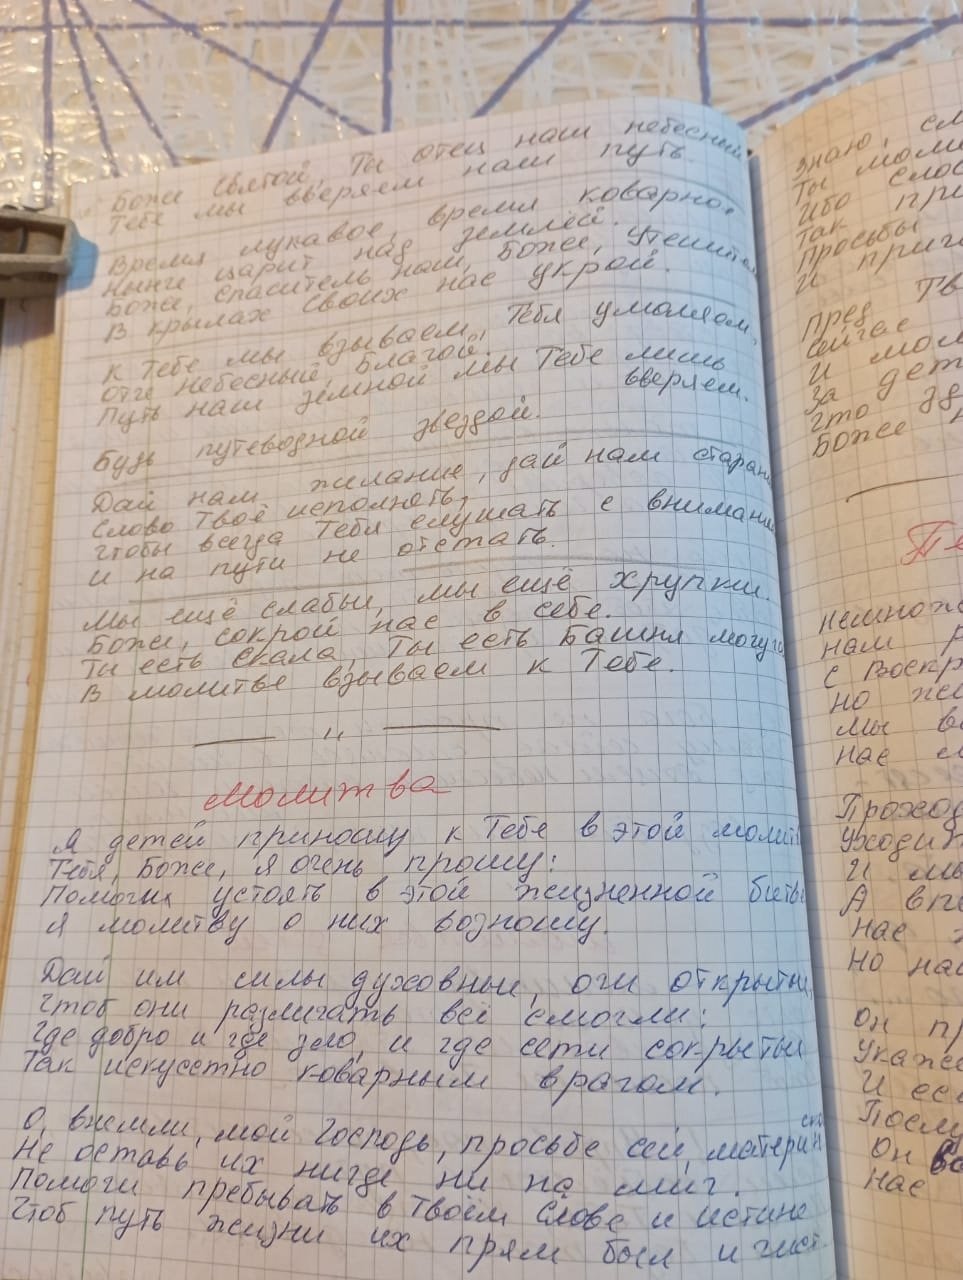 Боже Святой, Ты отец наш небесный
Тебе мы вверяем наш путь.
Время лукавое, время коварное
Ныне царит над землёй.
Боже, спаситель наш, Боже, Утешитель
В крылах Своих нас укрой.
К Тебе мы взываем, Тебя умоляем,
Отче небесный, благой.
Путь наш земной мы Тебе лишь
вверяем.
Будь путеводной звездой.
Дай нам желание, дай нам старан
Слово Твоё исполнять,
Чтобы всегда Тебя слушать с внимани
и на пути не отстать.
Мы ещё слабы, мы ещё хрупки.
Боже, сокрой нас в себе.
Ты есть Скала, Ты есть Башня могуча
В молитве взываем к Тебе.
— " —
Молитва
Я детей приношу к Тебе в этой молитв
Тебя, Боже, я очень прошу:
Помоги их устоять в этой жизненной битве
Я молитву о них возношу.
Дай им силы духовные, очи открыты,
Чтоб они различать всё смогли:
Где добро и где зло, и где сети сокрыты
Так искусстно коварным врагом.
О, внемли, мой Господь, просьбе сей, материн
ск
Не оставь их нигде ни на миг.
Помоги пребывать в Твоём Слове и истине
Чтоб путь жизни их прям был и чист.
знаю, сл
Ты моли
Ибо слов
Так при
просьбы
И приг
пред Тв
Сейчас
И мол
За дет
Что зд
Боже н
—
Пе
Немнож
нам р
с Воскр
но же
мы в
нас с
Проход
Уходит
И мы
А впе
нас
но нас
Он пр
Укаже
И есл
Послу
Он во
Нас